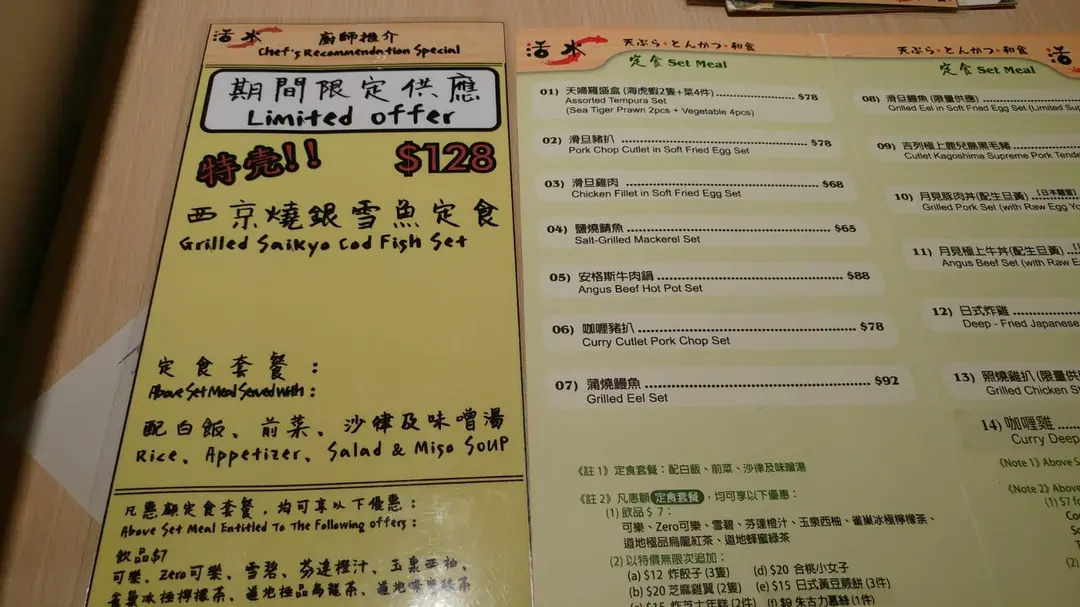 活水
廚師推介
Chef's Recommendation Special
期間限定供應
Limited offer
特壳!! $128
西京燒銀雪魚定食
Grilled Saikyo Cod Fish Set
定食套餐：
Above Set Meal Served with :
配白飯、前菜、沙律及味噌湯
Rice、Appetizer、Salad & Miso Soup
凡惠顧定食套餐，均可享以下優惠：
Above Set Meal Entitled To The Following offers :
飲品$7
可樂、Zero可樂、雪碧、芬達橙汁、玉泉西柚、
雀巢冰極檸檬茶、道地極品烏龍茶、道地蜂蜜綠茶
活水
天ぷら・とんかつ・和食
定食 Set Meal
01) 天婦羅盛盒 (海虎蝦2隻+菜4件) $78
Assorted Tempura Set
(Sea Tiger Prawn 2pcs + Vegetable 4pcs)
02) 滑旦豬扒 $78
Pork Chop Cutlet in Soft Fried Egg Set
03) 滑旦雞肉 $68
Chicken Fillet in Soft Fried Egg Set
04) 鹽燒鯖魚 $65
Salt-Grilled Mackerel Set
05) 安格斯牛肉鍋 $88
Angus Beef Hot Pot Set
06) 咖喱豬扒 $78
Curry Cutlet Pork Chop Set
07) 蒲燒鰻魚 $92
Grilled Eel Set
《註 1》定食套餐：配白飯、前菜、沙律及味噌湯
《註 2》凡惠顧 定食套餐，均可享以下優惠：
(1) 飲品 $ 7：
可樂、Zero可樂、雪碧、芬達橙汁、玉泉西柚、雀巢冰極檸檬茶、
道地極品烏龍紅茶、道地蜂蜜綠茶
(2) 以特價無限次追加：
(a) $12 炸餃子 (3隻) (d) $20 合桃小女子
(b) $20 芝麻雞翼 (2隻) (e) $15 日式黃豆蕨餅 (3件)
(c) $15 炸芝士年糕 (2件) (f) $9 朱古力慕絲 (1件)
天ぷら・とんかつ・和食
活
定食 Set Meal
08) 滑旦鰻魚 (限量供應)
Grilled Eel in Soft Fried Egg Set (Limited
09) 吉列極上鹿兒島黑毛豬
Cutlet Kagoshima Supreme Pork
10) 月見豚肉丼(配生旦黃)
Grilled Pork Set (with Raw Egg
11) 月見極上牛丼(配生旦黃)
Angus Beef Set (with Raw
12) 日式炸雞
Deep - Fried Japanese
13) 照燒雞扒(限量供
Grilled Chicken
14) 咖喱雞
Curry Deep
《Note 1》Above
《Note 2》Above
(1) $7
(2)